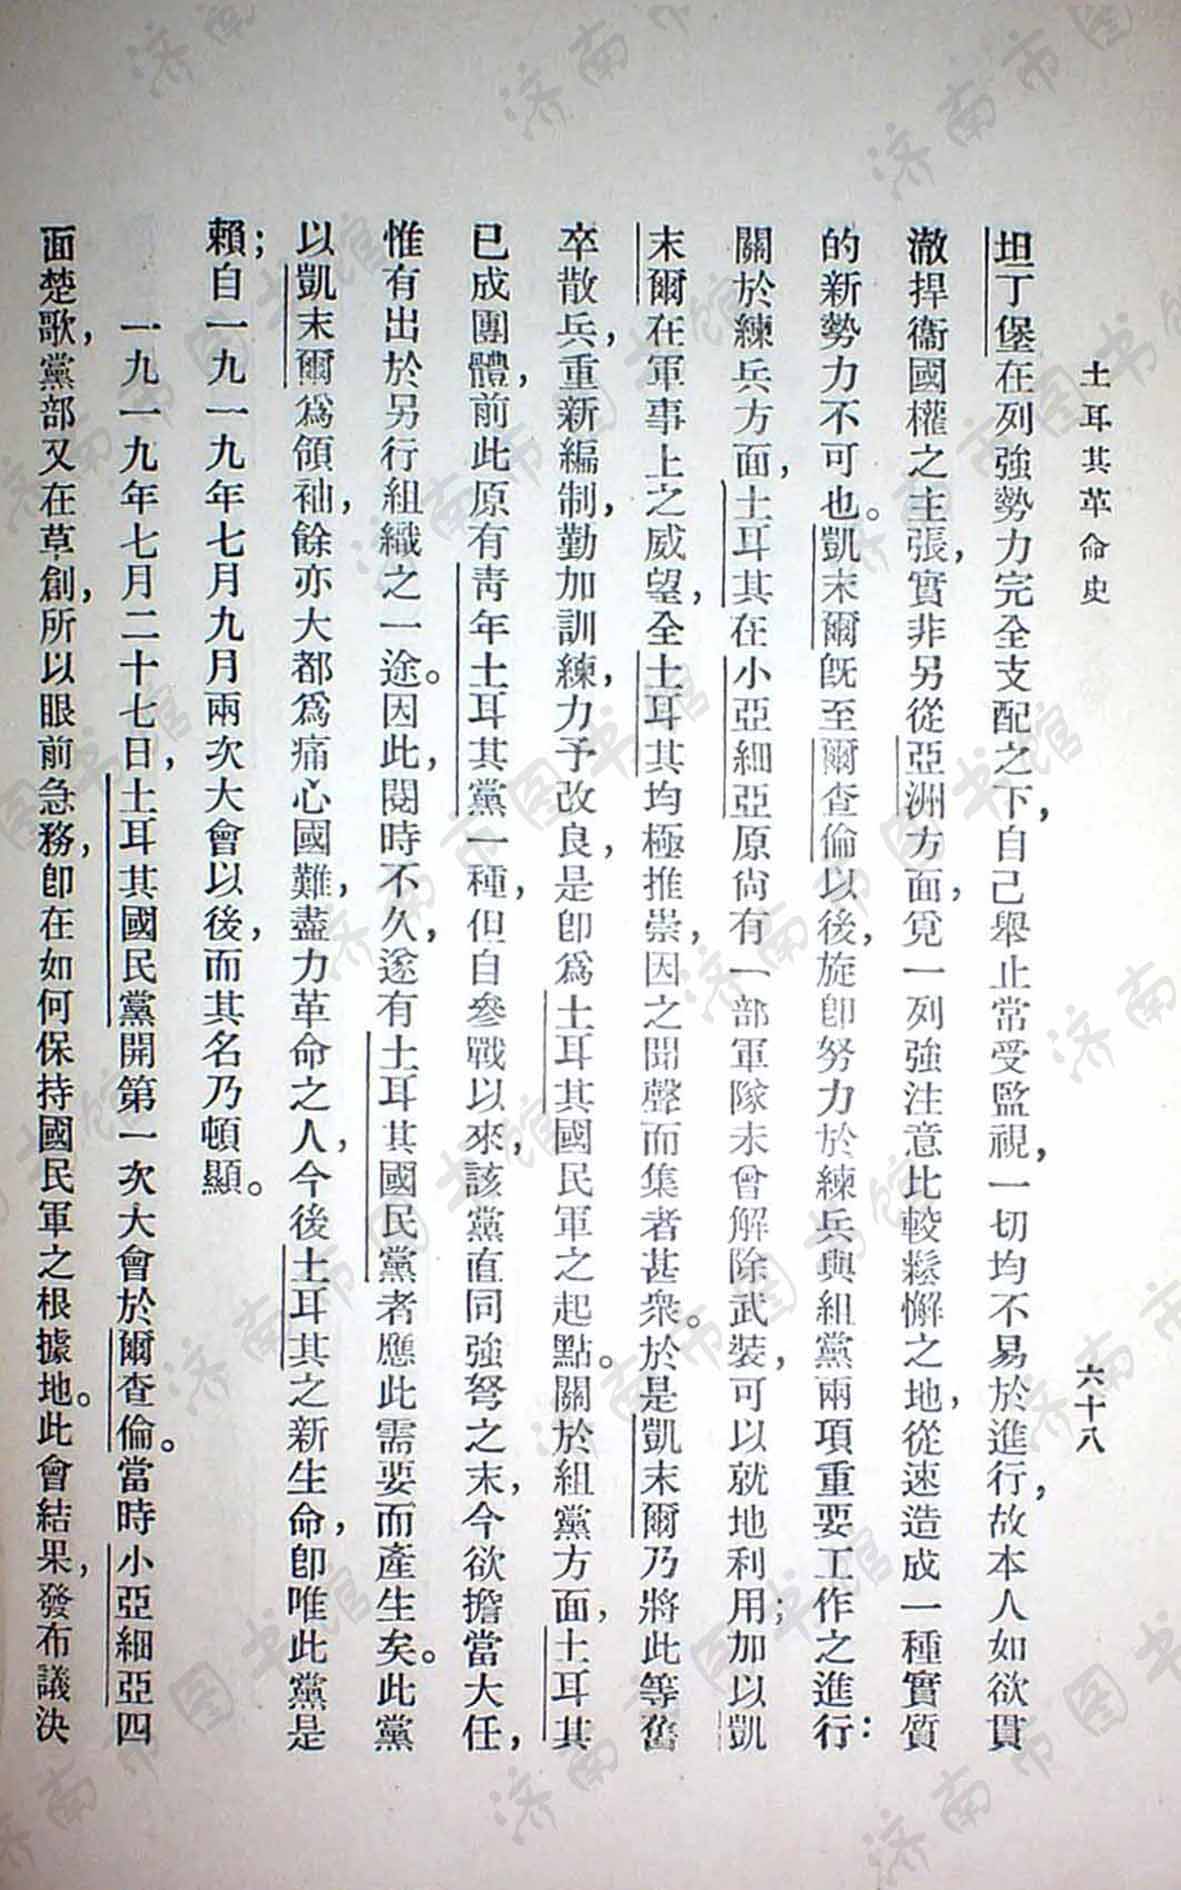 土耳其革命史
六十八
坦丁堡在列強勢力完全支配之下，自己舉止常受監視，一切均不易於進行，故本人如欲貫
澈捍衞國權之主張，實非另從亞洲方面，覓一列強注意比較鬆懈之地，從速造成一種實質
的新勢力不可也。凱末爾旣至爾查倫以後，旋卽努力於練兵與組黨兩項重要工作之進行：
關於練兵方面，土耳其在小亞細亞原尙有一部軍隊未曾解除武裝，可以就地利用；加以凱
末爾在軍事上之威望，全土耳其均極推崇，因之聞聲而集者甚衆。於是凱末爾乃將此等舊
卒散兵，重新編制，勤加訓練，力予改良，是卽爲土耳其國民軍之起點。關於組黨方面，土耳其
已成團體，前此原有靑年土耳其黨一種，但自參戰以來，該黨直同強弩之末，今欲擔當大任，
惟有出於另行組織之一途。因此，閱時不久，遂有土耳其國民黨者應此需要而產生矣。此黨
以凱末爾爲領袖，餘亦大都爲痛心國難，盡力革命之人，今後土耳其之新生命，卽唯此黨是
賴；自一九一九年七月九月兩次大會以後，而其名乃頓顯。
一九一九年七月二十七日，土耳其國民黨開第一次大會於爾查倫。當時小亞細亞四
面楚歌，黨部又在草創，所以眼前急務，卽在如何保持國民軍之根據地。此會結果，發布議決
济南市图书馆